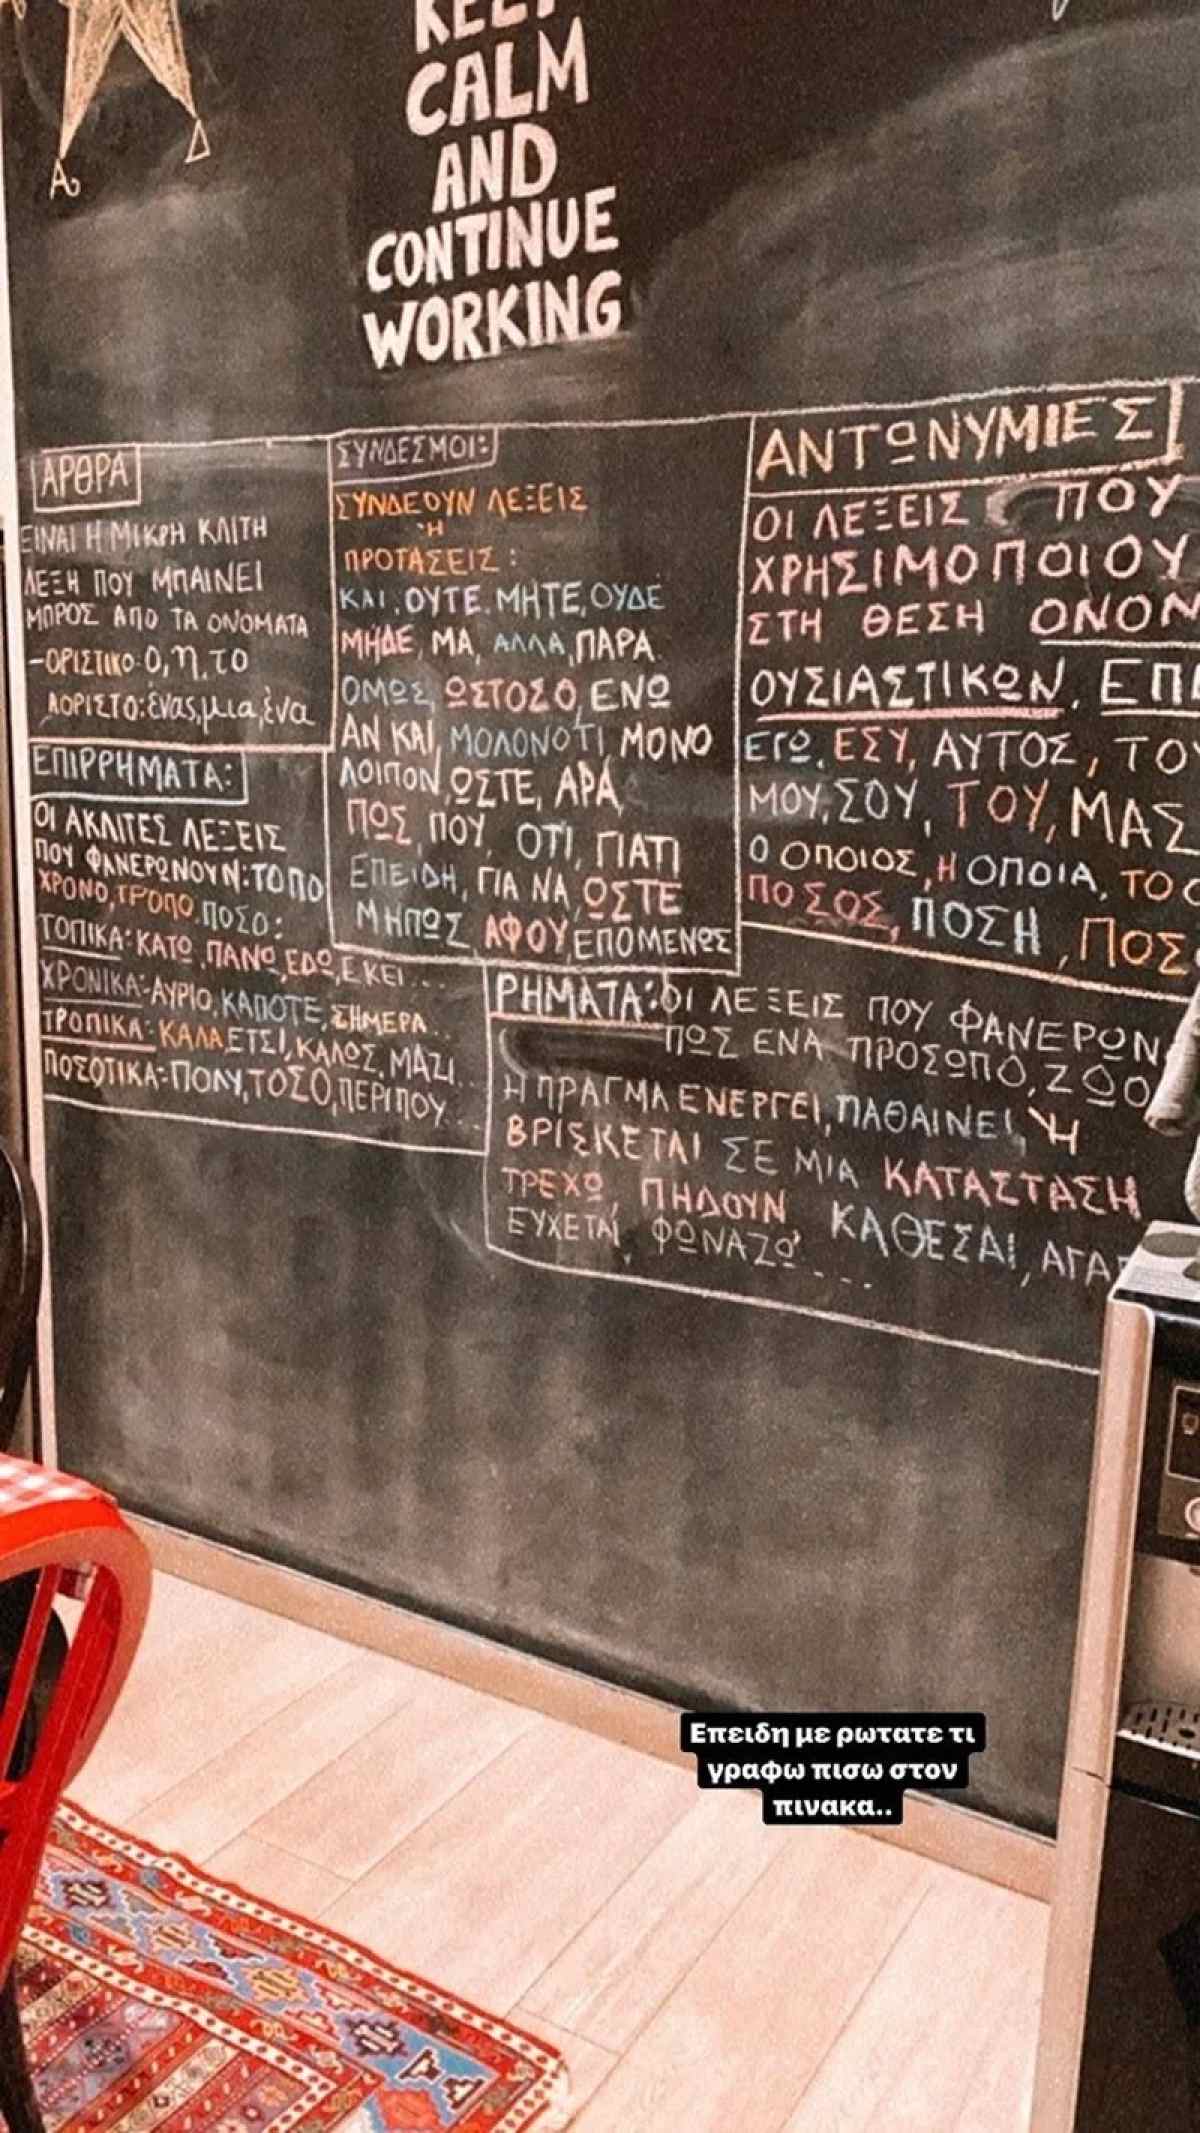 KEEP
CALM
AND
CONTINUE
WORKING
ΑΡΘΡΑ
ΕΙΝΑΙ Η ΜΙΚΡΗ ΚΛΙΤΗ
ΛΕΞΗ ΠΟΥ ΜΠΑΙΝΕΙ
ΜΠΡΟΣ ΑΠΟ ΤΑ ΟΝΟΜΑΤΑ
-ΟΡΙΣΤΙΚΟ: Ο, η, το
ΑΟΡΙΣΤΟ: ένας, μια, ένα
ΕΠΙΡΡΗΜΑΤΑ:
ΟΙ ΑΚΛΙΤΕΣ ΛΕΞΕΙΣ
ΠΟΥ ΦΑΝΕΡΩΝΟΥΝ: ΤΟΠΟ
ΧΡΟΝΟ, ΤΡΟΠΟ, ΠΟΣΟ:
ΤΟΠΙΚΑ: ΚΑΤΩ, ΠΑΝΩ, ΕΔΩ, ΕΚΕΙ...
ΧΡΟΝΙΚΑ:-ΑΥΡΙΟ, ΚΑΠΟΤΕ, ΣΗΜΕΡΑ..
ΤΡΟΠΙΚΑ: ΚΑΛΑ ΕΤΣΙ, ΚΑΛΩΣ, ΜΑΖΙ...
ΠΟΣΟΤΙΚΑ:-ΠΟΛΥ, ΤΟΣΟ, ΠΕΡΙΠΟΥ...
ΣΥΝΔΕΣΜΟΙ:
ΣΥΝΔΕΟΥΝ ΛΕΞΕΙΣ
Ή
ΠΡΟΤΑΣΕΙΣ:
ΚΑΙ, ΟΥΤΕ, ΜΗΤΕ, ΟΥΔΕ
ΜΗΔΕ, ΜΑ, ΑΛΛΑ, ΠΑΡΑ
ΟΜΩΣ, ΩΣΤΟΣΟ, ΕΝΩ
ΑΝ ΚΑΙ, ΜΟΛΟΝΟΤΙ, ΜΟΝΟ
ΛΟΙΠΟΝ, ΩΣΤΕ, ΑΡΑ,
ΠΩΣ, ΠΟΥ, ΟΤΙ, ΓΙΑΤΙ
ΕΠΕΙΔΗ, ΓΙΑ ΝΑ, ΩΣΤΕ
ΜΗΠΩΣ, ΑΦΟΥ, ΕΠΟΜΕΝΩΣ
ΑΝΤΩΝΥΜΙΕΣ
ΟΙ ΛΕΞΕΙΣ ΠΟΥ
ΧΡΗΣΙΜΟΠΟΙΟΥ
ΣΤΗ ΘΕΣΗ ΟΝΟΜ
ΟΥΣΙΑΣΤΙΚΩΝ, ΕΠΙ
ΕΓΩ, ΕΣΥ, ΑΥΤΟΣ, ΤΟΥ
ΜΟΥ, ΣΟΥ, ΤΟΥ, ΜΑΣ
Ο ΟΠΟΙΟΣ, Η ΟΠΟΙΑ, ΤΟ Ο
ΠΟΣΟΣ, ΠΟΣΗ, ΠΟΣ
ΡΗΜΑΤΑ: ΟΙ ΛΕΞΕΙΣ ΠΟΥ ΦΑΝΕΡΩΝ
ΠΩΣ ΕΝΑ ΠΡΟΣΩΠΟ, ΖΩΟ
Η ΠΡΑΓΜΑ ΕΝΕΡΓΕΙ, ΠΑΘΑΙΝΕΙ, Ή
ΒΡΙΣΚΕΤΑΙ ΣΕ ΜΙΑ ΚΑΤΑΣΤΑΣΗ
ΤΡΕΧΩ, ΠΗΔΟΥΝ ΚΑΘΕΣΑΙ, ΑΓΑΠ
ΕΥΧΕΤΑΙ, ΦΩΝΑΖΩ....
Επειδη με ρωτατε τι
γραφω πισω στον
πινακα..